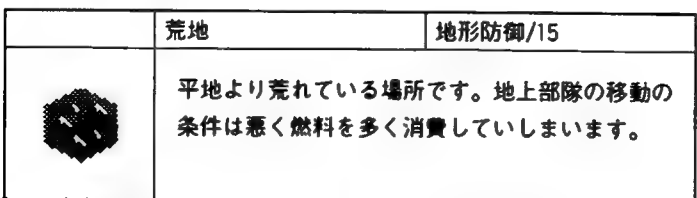 荒地
地形防御/15
平地より荒れている場所です。地上部隊の移動の
条件は悪く燃料を多く消費していしまいます。